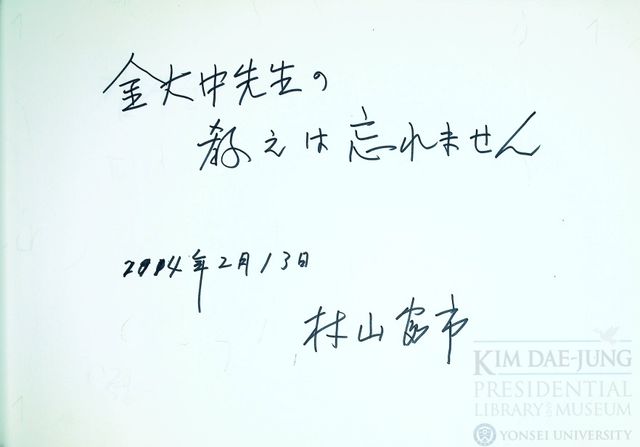 金大中先生の
教えは忘れません
2004年2月13日
村山富市
KIM DAE-JUNG
PRESIDENTIAL
LIBRARY AND MUSEUM
YONSEI UNIVERSITY